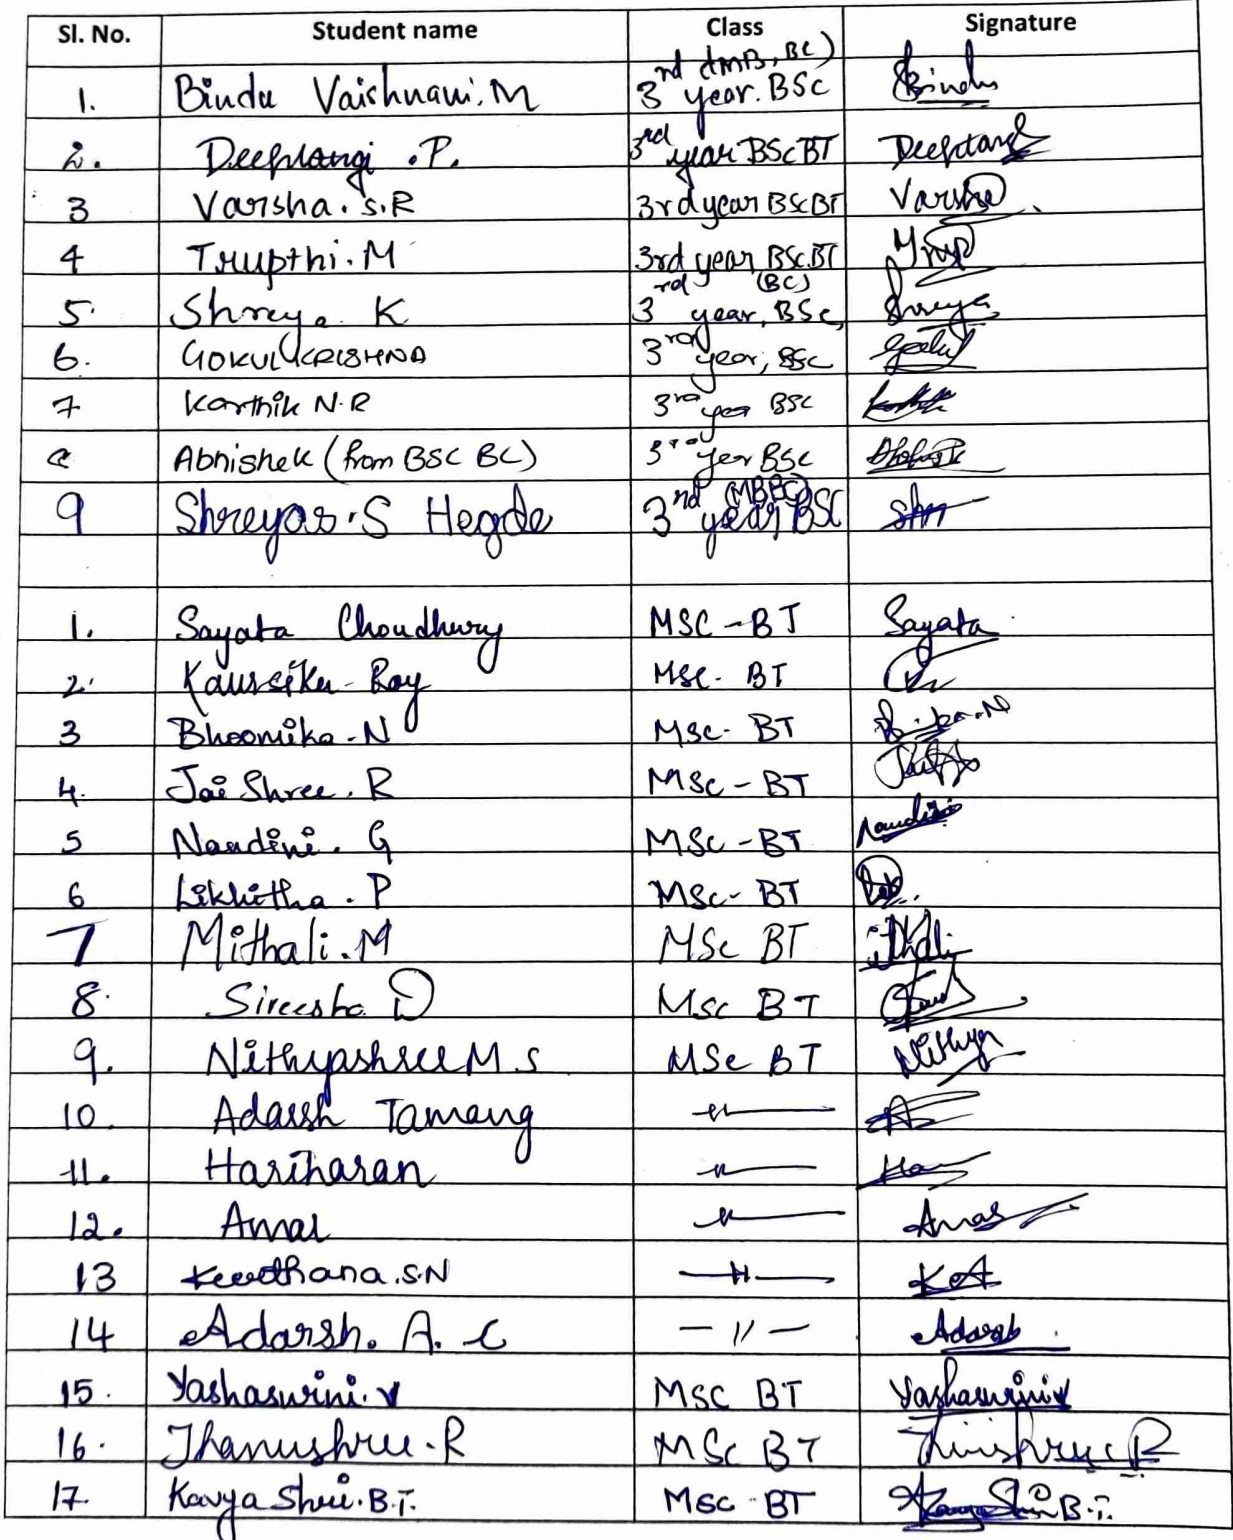 Sl. No. Student name Class Signature
1. Bindu Vaishnavi. M 3rd year. BSc (MB, BC) Bindu
2. Deeptangi .P. 3rd year BSc BT Deeptangi
3 Varsha. S.R 3rd year BSc BT Varsha
4 Trupthi. M 3rd year BSc.BT
5. Shreya K 3rd year, BSc, (BC) Shreya
6. GOKUL KRISHNA 3rd year, BSc Gokul
7 Karthik N.R 3rd year BSc
Abhishek (from BSC BC) 3rd year BSc
9 Shreyas.S Hegde 3rd year BSC (MBBC)
1. Sayata Choudhury MSC - BT Sayata
2. Roy MSc. BT
3 Bhoomika. N MSc. BT
4. Jai Shree. R MSc - BT
5 Nandini. G MSc - BT Nandini
6 Likhitha. P MSc - BT
7 Mithali. M MSc BT
8. Sireesha D MSc BT
9. Nithyashree M S MSc BT Nithya
10. Adarsh Tamang —〃—
11. Hariharan —〃—
12. Amal —〃—
13 Keerthana.S.N —〃—
14 Adarsh. A. C — 〃 — Adarsh
15. Yashaswini. V MSC BT Yashaswini V
16. Thanushree. R MSc BT
17. Kavya Shree. B.T. MSC - BT B.T.